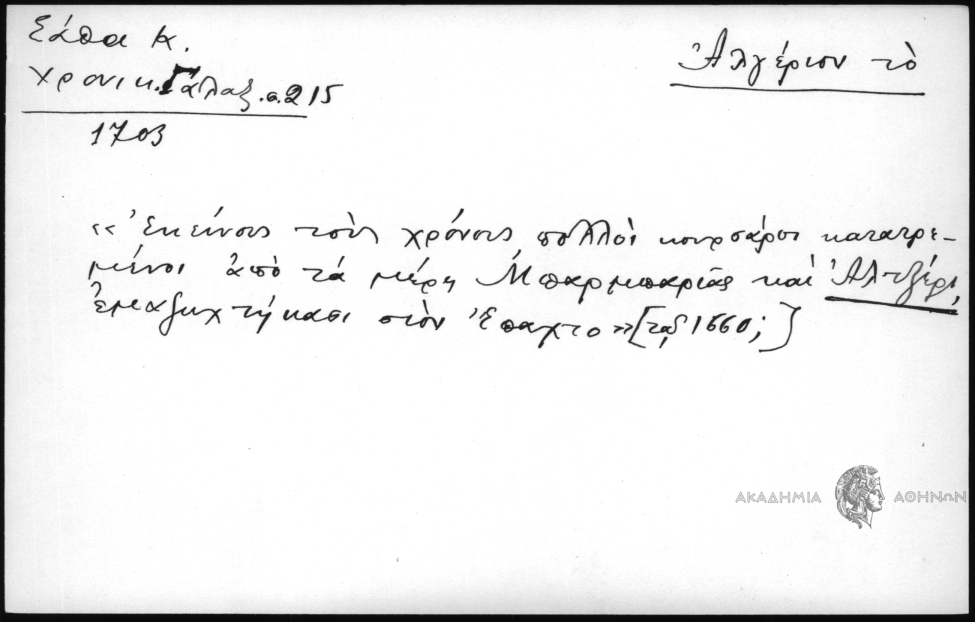 Σάθα Κ.
Χρονικ. Γαλαξ. σ. 215
1703
Ἀλγέριον τὸ
«Ἐκείνους τοὺς χρόνους πολλοὶ κουρσάροι κατατρε-
μένοι ἀπὸ τὰ μέρη Μπαρμπαριᾶς καὶ Ἀλτζέρι,
ἐμαζωχτήκασι στὸν Ἔπαχτο» [τῷ 1660;]
ΑΚΑΔΗΜΙΑ ΑΘΗΝΩΝ